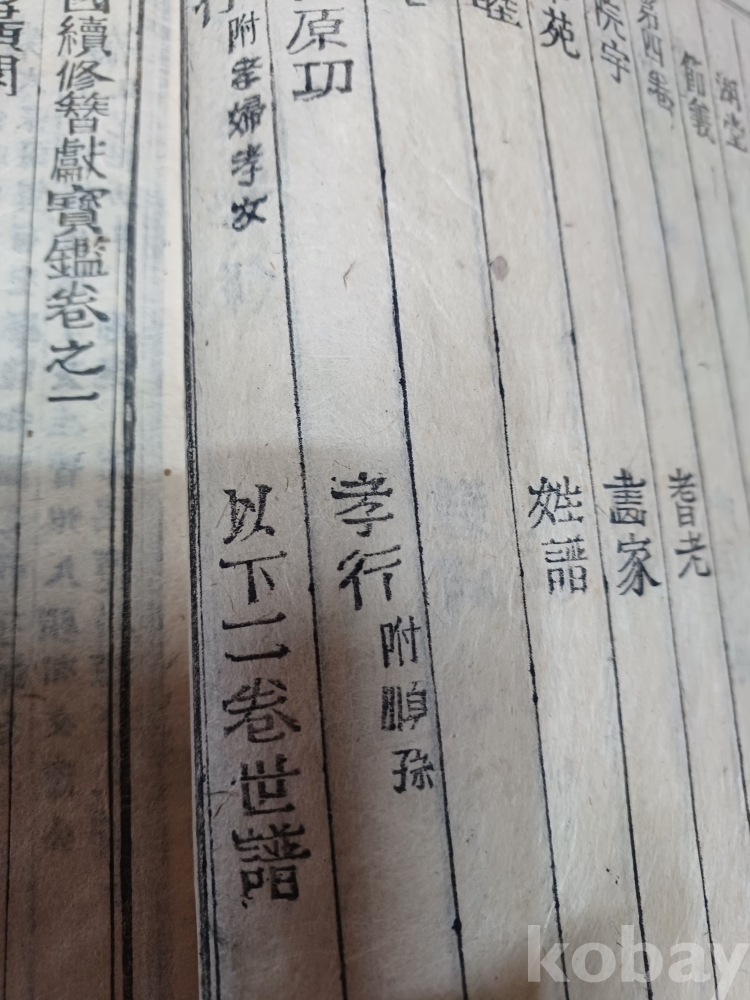 湖堂
節義 耆老
第四卷
院宇 畵家
苑 姓譜
睦
原功 孝行 附順孫
行 附孝婦孝女 以下二卷世譜
國續修簪獻寶鑑卷之一
kobay